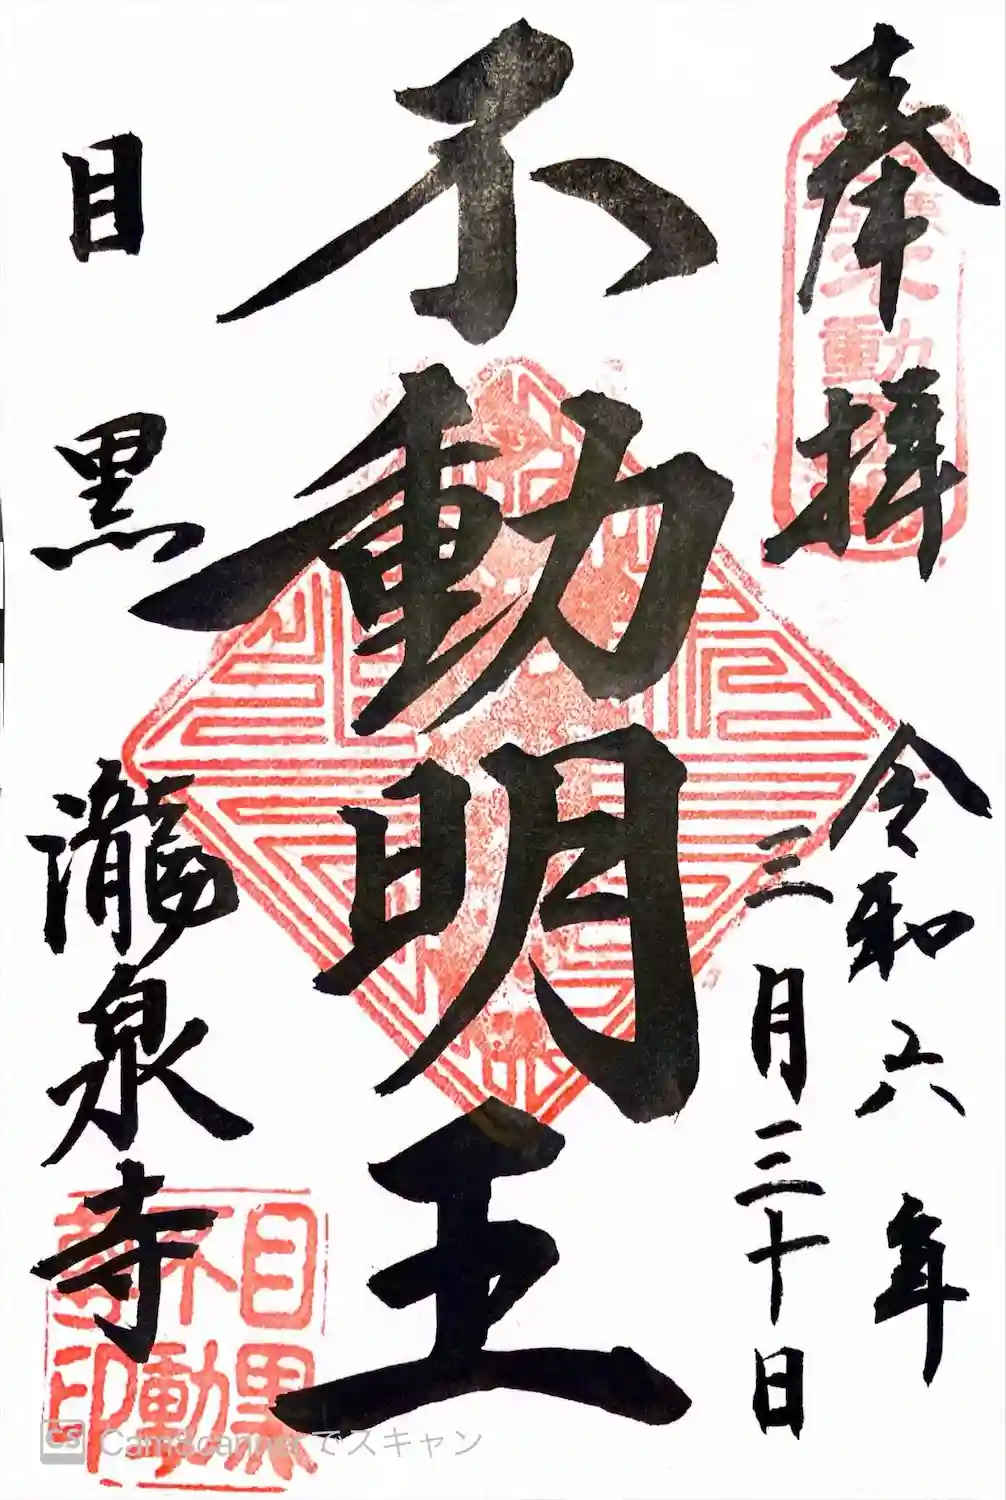 奉拝
令和六年
三月三十日
不動明王
目黒
瀧泉寺
目黒
不動
尊印
CS CamScannerでスキャン